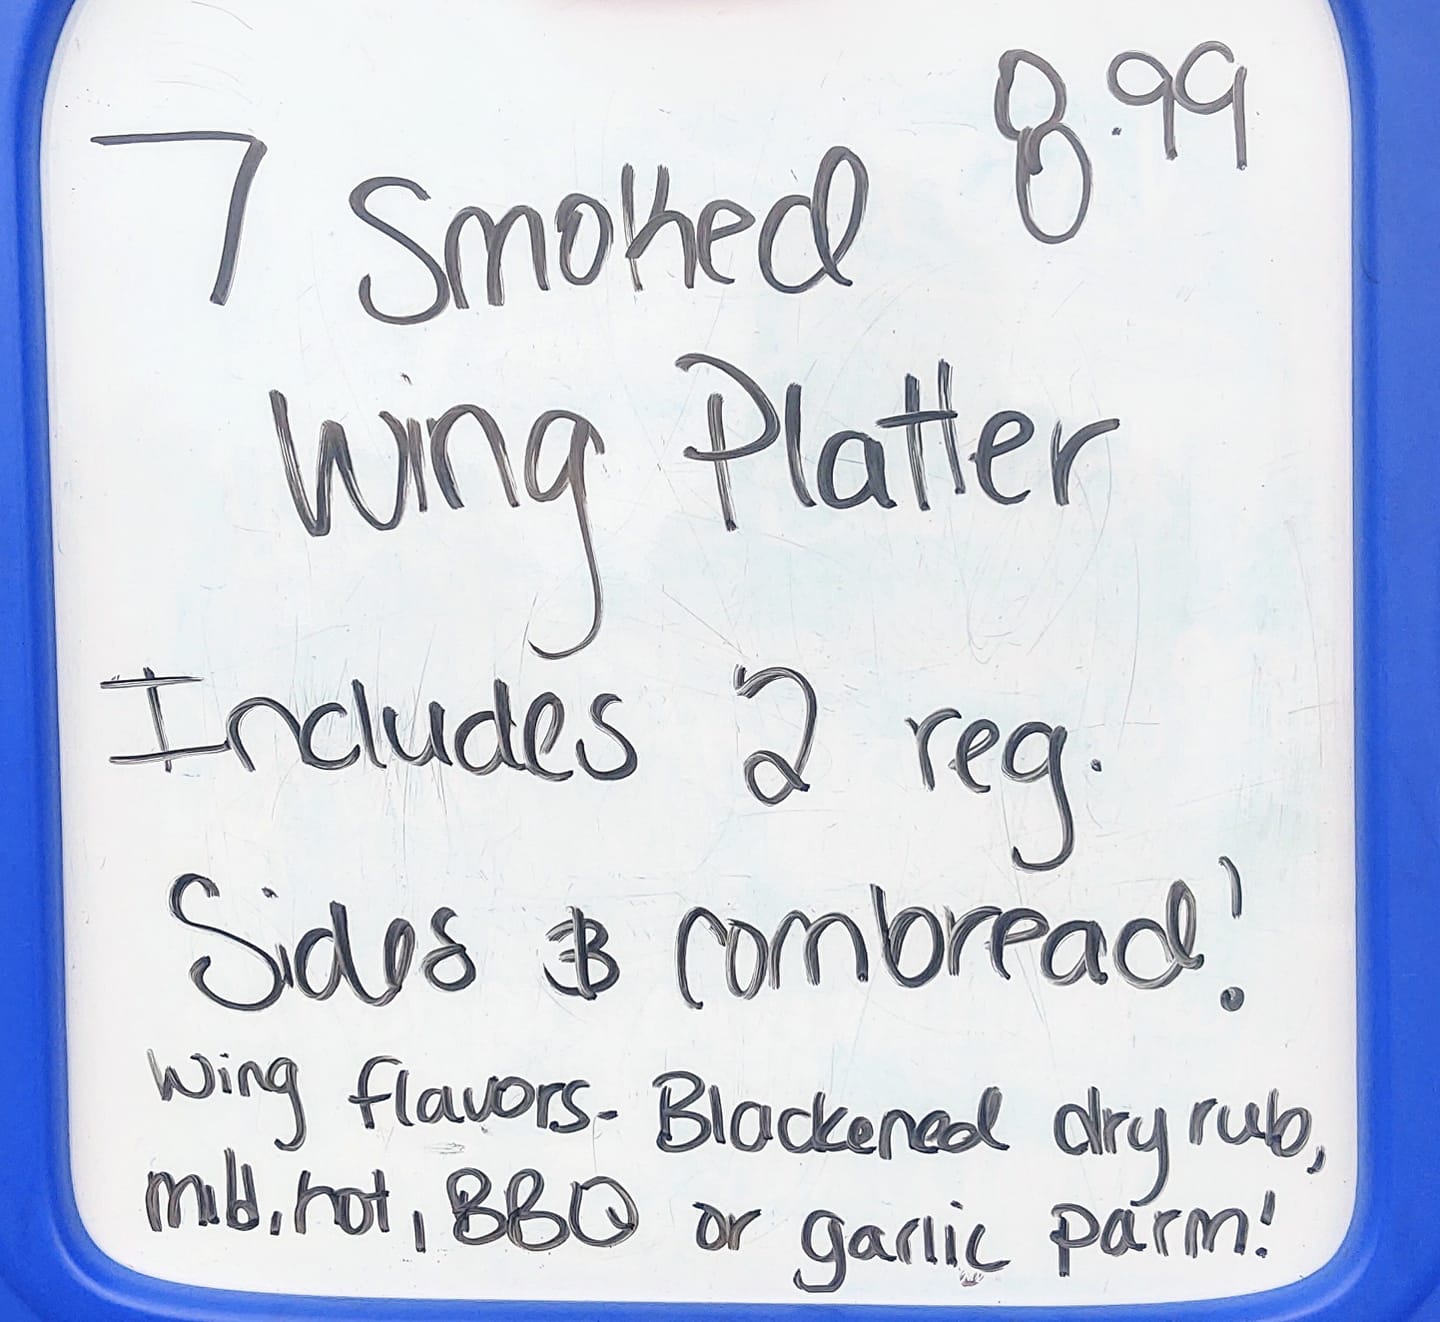 7 Smoked 8.99
Wing Platter
Includes 2 reg.
Sides & cornbread!
Wing flavors- Blackened dry rub,
mild, hot, BBQ or garlic parm!